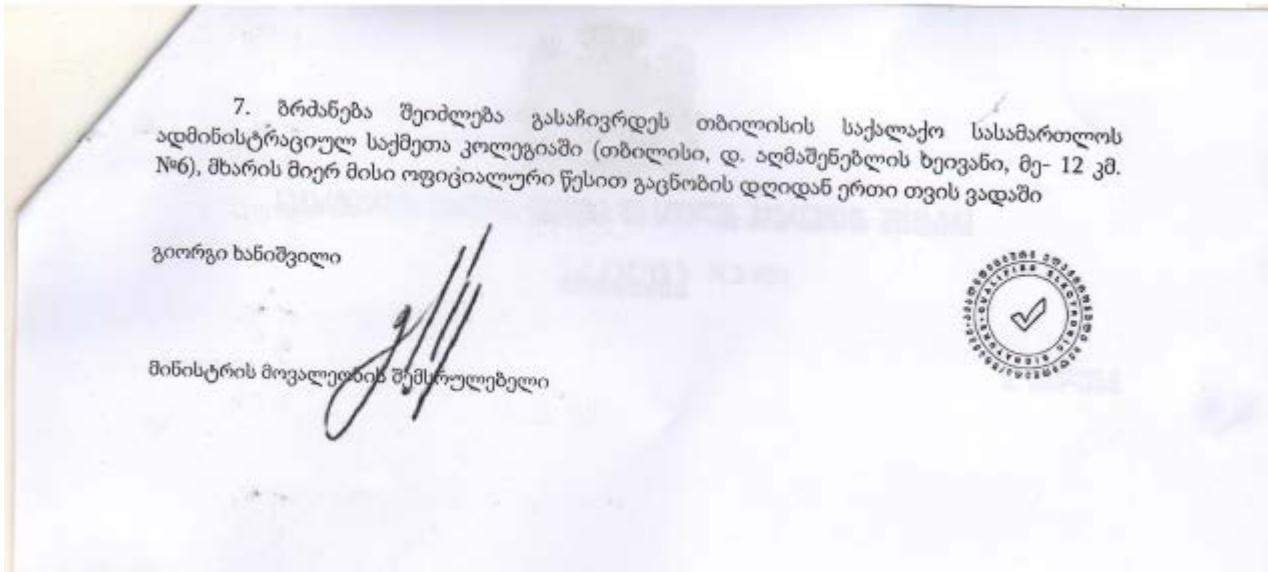 7. ბრძანება შეიძლება გასაჩივრდეს თბილისის საქალაქო სასამართლოს
ადმინისტრაციულ საქმეთა კოლეგიაში (თბილისი, დ. აღმაშენებლის ხეივანი, მე- 12 კმ.
№6), მხარის მიერ მისი ოფიციალური წესით გაცნობის დღიდან ერთი თვის ვადაში
გიორგი ხანიშვილი
მინისტრის მოვალეობის შემსრულებელი
QUALIFIED ELECTRONIC SIGNATURE